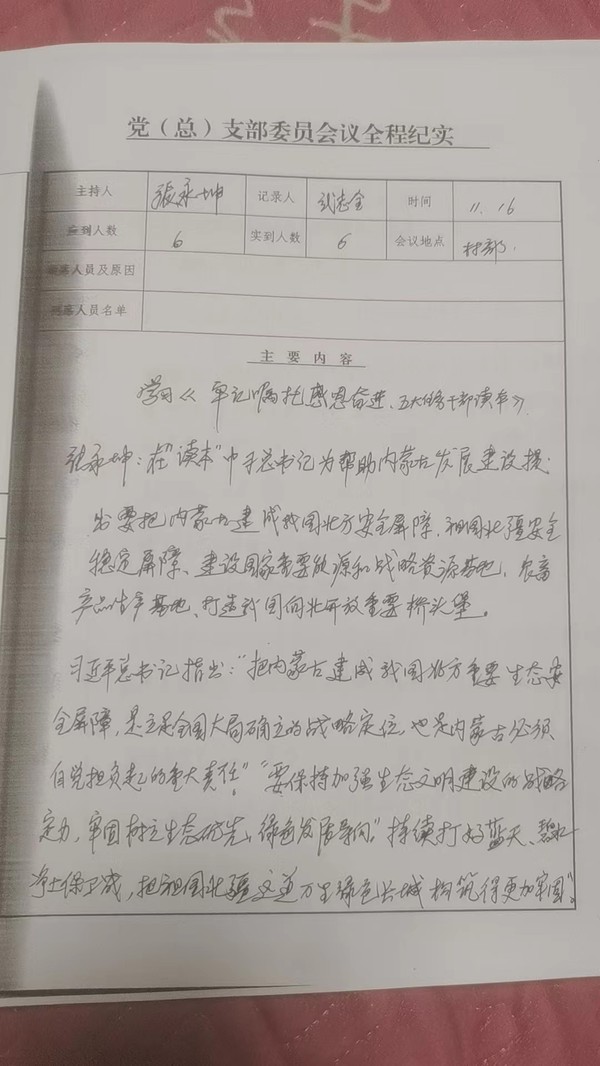 党（总）支部委员会议全程纪实
主持人 张永坤 记录人 武志全 时间 11.16
应到人数 6 实到人数 6 会议地点 村部.
缺席人员及原因
列席人员名单
主要内容
学习《牢记嘱托感恩奋进、五大任务干部读本》
张永坤：在"读本"中 总书记为帮助内蒙古发展建设提
出要把内蒙古建成我国北方安全屏障、祖国北疆安全
稳定屏障、建设国家重要能源和战略资源基地、农畜
产品生产基地、打造我国向北开放重要桥头堡。
习近平总书记指出："把内蒙古建成我国北方重要生态安
全屏障，是立足全国大局确立的战略定位，也是内蒙古必须
自觉担负起的重大责任""要保持加强生态文明建设的战略
定力，牢固树立生态优先、绿色发展导向。"持续打好蓝天、碧水、
净土保卫战，把祖国北疆这道万里绿色长城构筑得更加牢固"。